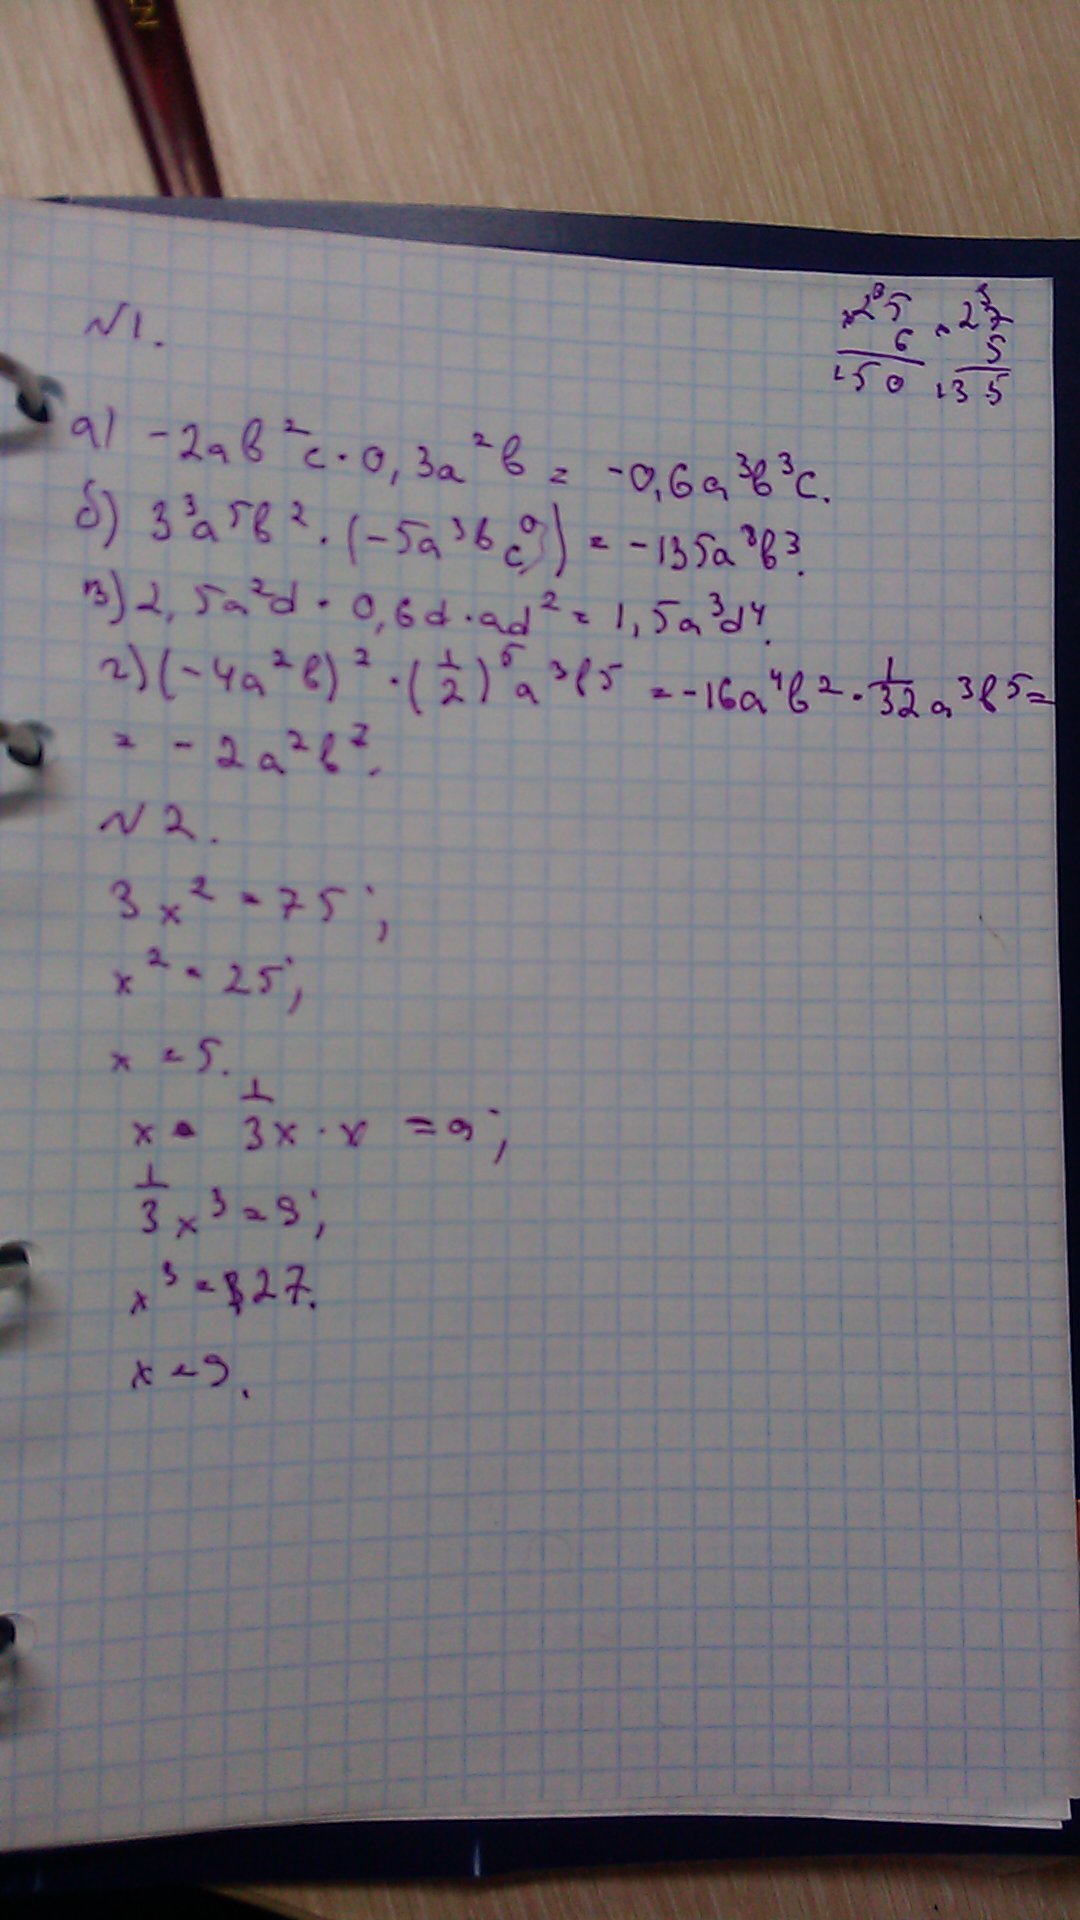 EN
×25 ×27
6 5
150 135
N1.
а) -2ab²c·0,3a²b = -0,6a³b³c.
б) 3³a⁵b²·(-5a³bc⁰) = -135a⁸b³.
в) 2,5a²d·0,6d·ad² = 1,5a³d⁴.
г) (-4a²b)²·(1/2)⁵a³b⁵ = -16a⁴b²·1/32a³b⁵=
= -2a²b⁷.
N2.
3x² = 75;
x² = 25;
x = 5.
x · 1/3x·x = 9;
1/3x³ = 9;
x³ = 27.
x = 9.